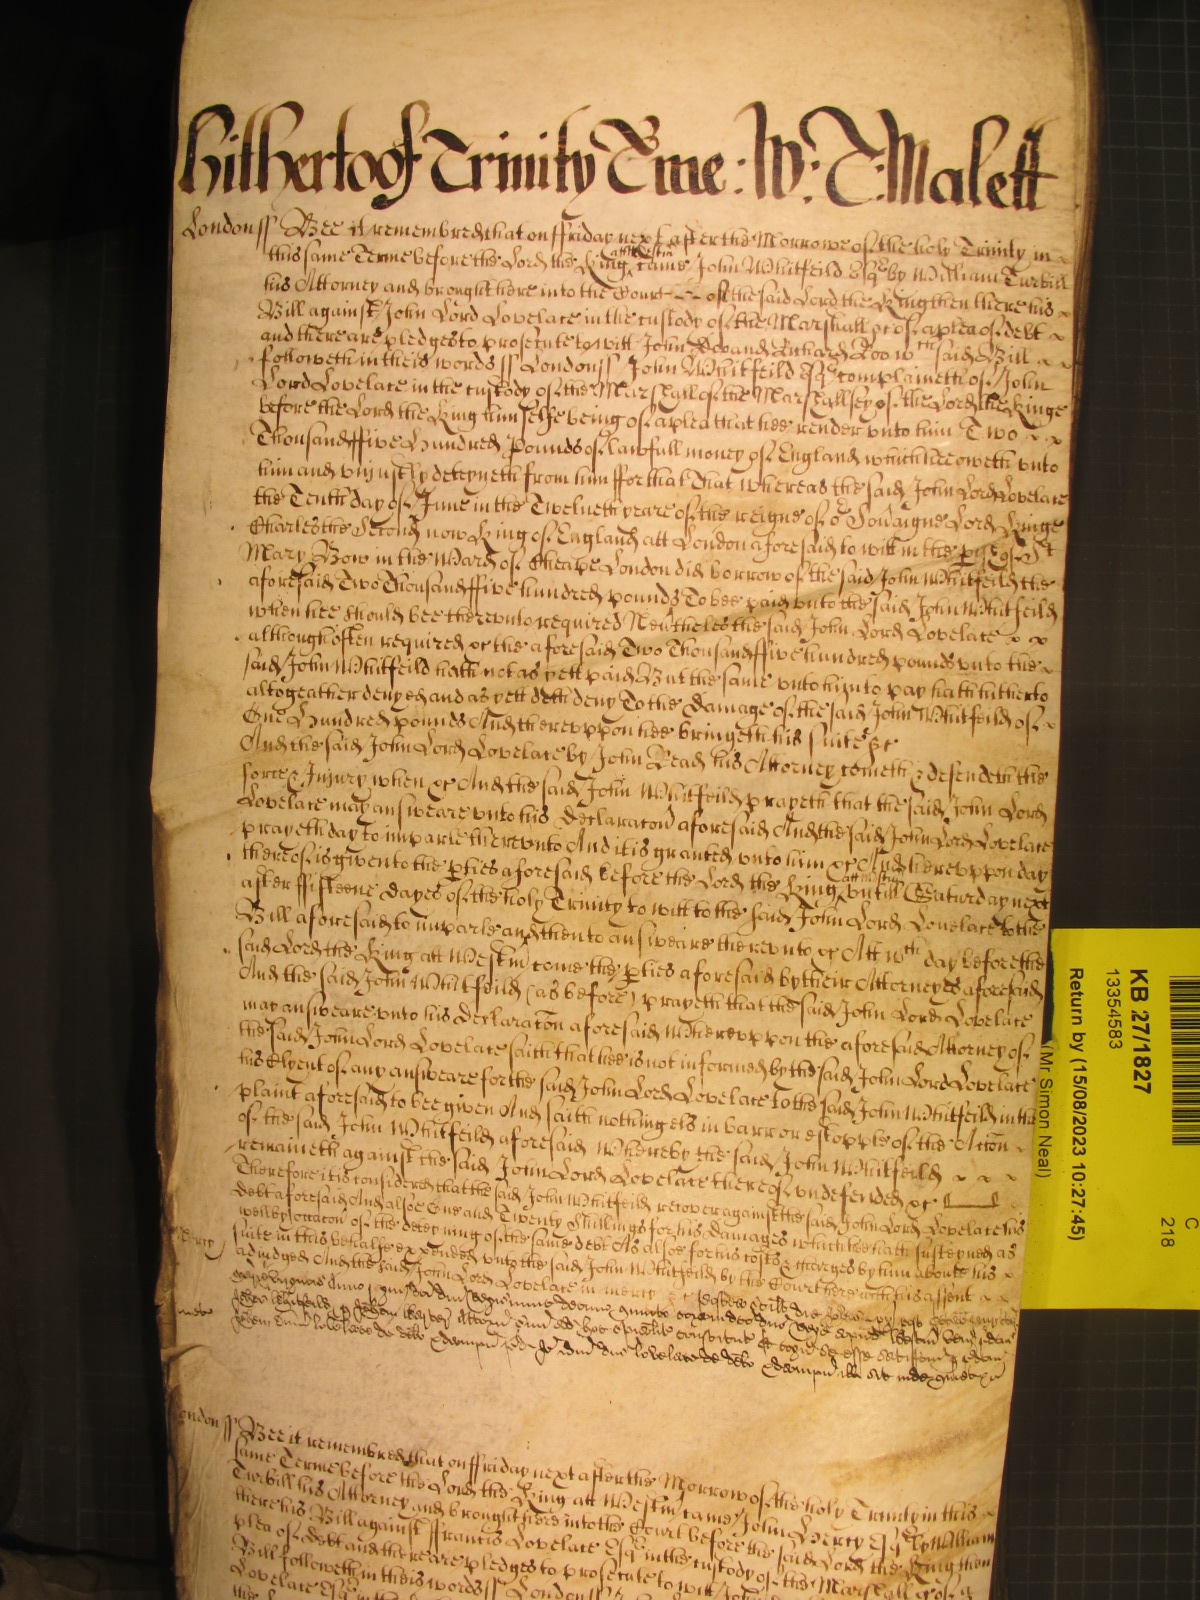 Hitherto of Trinity Tme : W : T : Malett
London ss Bee it remembred that on ffriday next after the Morrowe of the holy Trinity in
this same Terme before the Lord the King att Westm came John Whitfeild Esqr by William Turbill
his Attorney and brought here into the Court of the said Lord the King then there his
Bill against John Lord Lovelace in the custody of the Marshall &c of a plea of debt
and there are pledges to prosecute to witt John Doe and Richard Roo wch said Bill
followeth in theis words ss London ss John Whitfeild Esqr complaineth of John
Lord Lovelace in the custody of the Marshall of the Marshallsey of the Lord the Kinge
before the Lord the King himselfe being of a plea that hee render unto him Two
Thousand ffive Hundred Pounds of lawfull money of England which hee oweth unto
him and unjustly deteyneth from him ffor that That whereas the said John Lord Lovelace
the Tenth day of June in the Twelueth yeare of the reigne of or Soveraigne Lord Kinge
Charles the Second now King of England att London aforesaid to witt in the pish of St
Mary Bow in the Ward of Cheape London did borrow of the said John Whitfeild the
aforesaid Two Thousand ffive hundred pounds To bee paid unto the said John Whitfeild
when hee should bee thereunto required Neutheles the said John Lord Lovelace
although often required &c the aforesaid Two Thousand ffive hundred pounds unto the
said John Whitfeild hath not as yett paid But the same unto him to pay hath hitherto
altogeather denyed and as yett doth deny To the Damage of the said John Whitfeild of
One Hundred pounds And thereuppon hee bringeth his suite &c
And the said John Lord Lovelace by John Read his Attorney cometh & defendeth the
force & Injury when &c And the said John Whitfeild prayeth that the said John Lord
Lovelace may answeare unto his Declaracon aforesaid And the said John Lord Lovelace
prayeth day to imparle thereunto And it is granted unto him &c And thereuppon day
thereof is given to the pties aforesaid before the Lord the King att Westm untill Saturday next
after ffifteene dayes of the holy Trinity to witt to the said John Lord Lovelace to the
Bill aforesaid to imparle and then to answeare thereunto &c Att wch day before the
said Lord the King att Westm come the pties aforesaid by their Attorneyes aforesaid
And the said John Whitfeild (as before) prayeth that the said John Lord Lovelace
may answeare unto his Declaracon aforesaid Whereuppon the aforesaid Attorney of
the said John Lord Lovelace saith that hee is not informed by the said John Lord Lovelace
his Clyent of any answeare for the said John Lord Lovelace to the said John Whitfeild in the
plaint aforesaid to bee given And saith nothing els in barr or estopple of the Accon
of the said John Whitfeild aforesaid Whereby the said John Whitfeild
remaineth against the said John Lord Lovelace thereof undefended &c
Therefore it is considered that the said John Whitfeild recover against the said John Lord Lovelace his
debt aforesaid And alsoe One and Twenty shillings for his damages which hee hath susteyned as
well by occacon of the deteyning of the same debt As alsoe for his costs & charges by him about his
suite in this behalfe expended unto the said John Whitfeild by the Court here with his assent
adiudged And the said John Lord Lovelace in mercy &c
Mercy
London ss Bee it remembred that on ffriday next after the Morrow of the holy Trinity in this
same Terme before the Lord the King att Westm came John Berty Esqr by William
Turbill his Attorney and brought here into the Court before the said Lord the King then
there his Bill against ffrancis Lovelace Esqr in the custody of the Marshall &c of a
plea of debt and there are pledges to prosecute to witt John
Bill followeth in theis words ss London ss
Lovelace Esqr in the
KB 27/1827
13354583
Return by (15/08/2023 10:27:45)
(Mr Simon Neal)
C
218